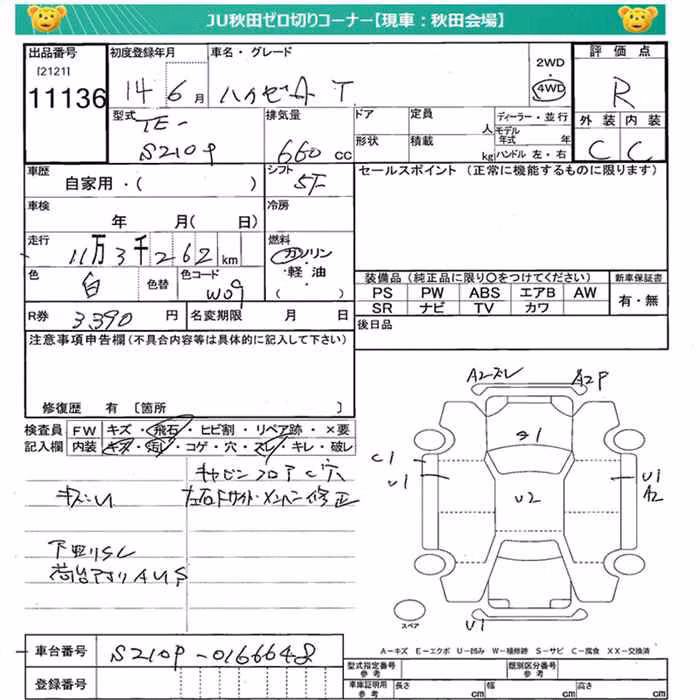 JU秋田ゼロ切りコーナー【現車：秋田会場】
出品番号
[2121]
11136
初度登録年月
14 6月
車名・グレード
ハイゼット T
2WD
・
4WD
評価点
R
外装 内装
C C
型式
TE-
S210P
排気量
660 cc
ドア
定員
人
形状
積載
kg
ディーラー・並行
モデル年式 年
ハンドル 左・右
車歴
自家用・( )
シフト
5F
セールスポイント（正常に機能するものに限ります）
車検
年 月( 日)
冷房
走行
11万3千262 km
燃料
ガソリン
・軽油・
( )
色
白
色替
色コード
W09
装備品（純正品に限り〇をつけてください）
PS PW ABS エアB AW
SR ナビ TV カワ
新車保証書
有・無
R券 3,390 円
名変期限 月 日
後日品
注意事項申告欄（不具合内容等は具体的に記入して下さい）
修復歴 有〔箇所 〕
検査員
記入欄
FW キズ・飛石・ヒビ割・リペア跡・×要
内装 キズ・汚レ・コゲ・穴・スレ・キレ・破レ
キャビンフロア C穴
キズ・U
左右Fサイドメンバー修正
下回りSC
荷台アオリAUS
A2スレ
A2P
C1
U1
U2
U1
A2
U1
スペア
A－キズ E－エクボ U－凹み W－補修跡 S－サビ C－腐食 XX－交換済
車台番号
S210P-0166648
登録番号
型式指定番号
参考
類別区分番号
参考
車庫証明用
参考
長さ cm
幅 cm
高さ cm